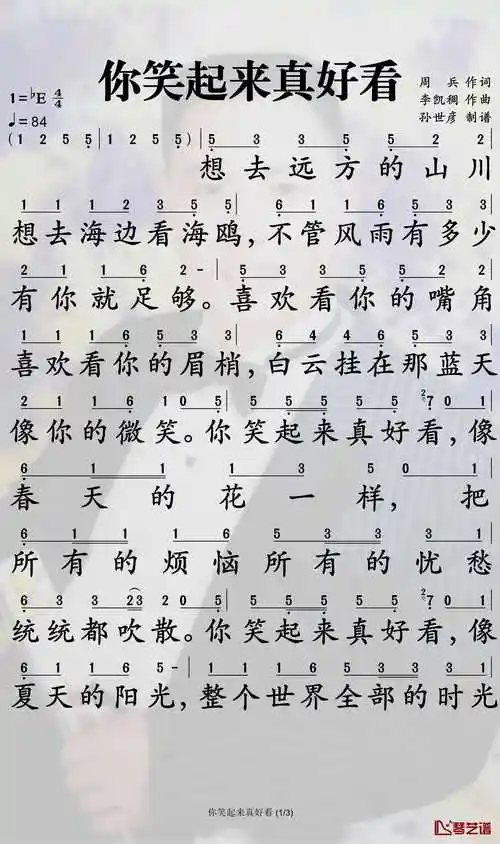 你笑起来真好看
周兵 作词
1=♭E 4/4
李凯稠 作曲
♩=84
孙世彦 制谱
(1 2 5 5 | 1 2 5 5) | 5 3 3 5 5 2 2
想去远方的山川
1 1 1 2 3 5 5 | 6 1 1 1 6 5 3 3
想去海边看海鸥,不管风雨有多少
2 1 1 6 2 - | 5 3 3 5 5 2 2
有你就足够。喜欢看你的嘴角
1 1 1 6 5 3 3 | 6 4 4 6 5 3 3
喜欢看你的眉梢,白云挂在那蓝天
2 1 1 6 1 0 5 | 5 5 5 5 7 0 1
像你的微笑。你笑起来真好看,像
6 1 1 1 3 5 0 1
春天的花一样,把
6 1 1 1 6 5 3 3 1
所有的烦恼所有的忧愁
统统都吹散。你笑起来真好看,像
6 1 1 6 5 - | 1 1 6 1 5 3 3 3 1
夏天的阳光,整个世界全部的时光
你笑起来真好看 (1/3)
琴艺谱